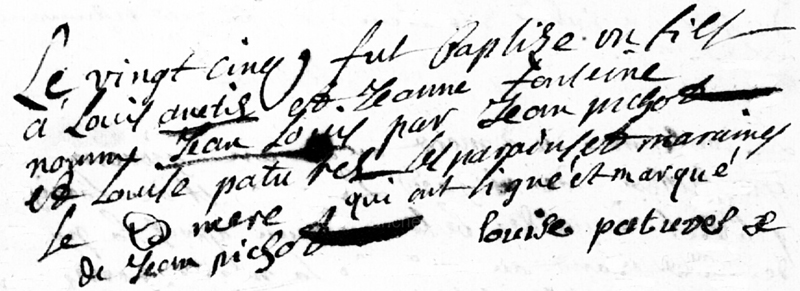 Le vingt cinq fut Baptize un fils
à Louis auetil et Jeanne fonteine
nommé Jean Louis par Jean pichot
et Louise patures les parains et maraines
qui ont signé et marqué
le mere
de Jean pichot
Louise patures